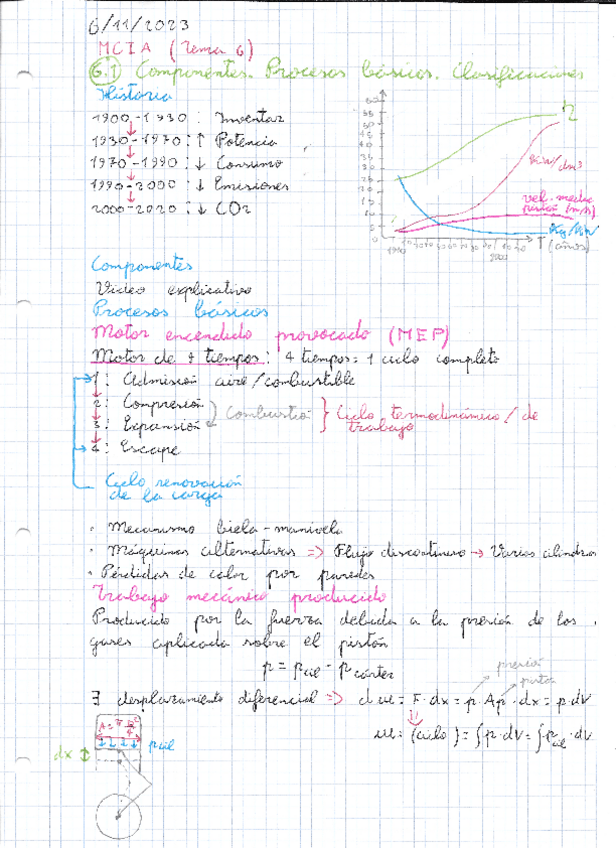 6/11/2023
MCIA (Tema 6)
6.1 Componentes. Procesos básicos. Clasificaciones
Historia
1900-1930: Inventar
1930-1970: ↑ Potencia
1970-1990: ↓ Consumo
1990-2000: ↓ Emisiones
2000-2020: ↓ CO2
η
kW/dm³
vel. media
pistón (m/s)
T (años)
1900
2000
Componentes
Video explicativo
Procesos básicos
Motor encendido provocado (MEP)
Motor de 4 tiempos: 4 tiempos = 1 ciclo completo
1: Admisión aire/combustible
2: Compresión
3: Expansión
Combustión
Ciclo termodinámico/de
trabajo
4: Escape
Ciclo renovación
de la carga
· Mecanismo biela-manivela
· Máquinas alternativas => Flujo discontinuo → Varios cilindros
· Pérdidas de calor por paredes
Trabajo mecánico producido
Producido por la fuerza debida a la presión de los
gases aplicada sobre el pistón
p = pcil - pcárter
presión
pistón
∃ desplazamiento diferencial => dw = F·dx = p·Ap·dx = p·dV
w = (ciclo) = ∫p·dV = ∫pcil·dV
pcil
dx